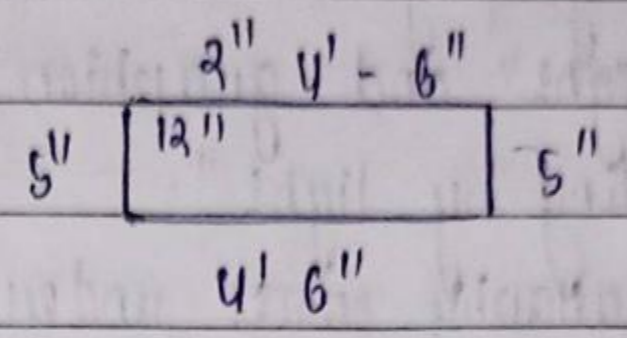 2" 4' - 6"
5" 12" 5"
4' 6"